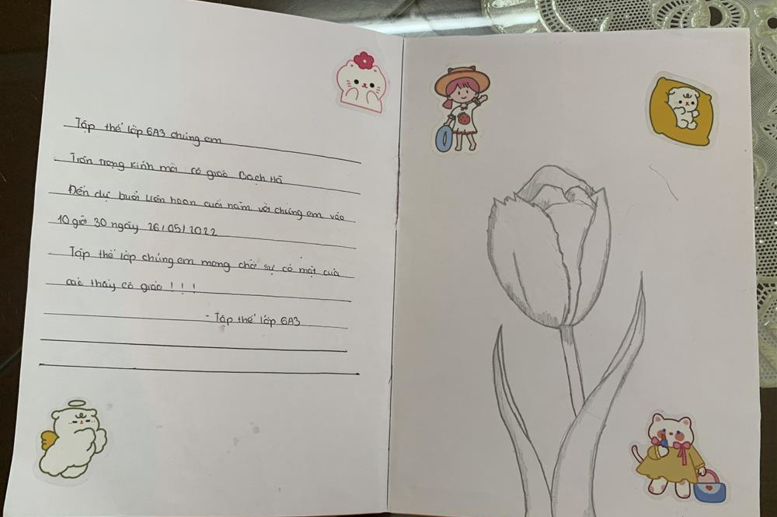 Tập thể lớp 6A3 chúng em
Trân trọng kính mời cô giáo Bạch Hà
Đến dự buổi liên hoan cuối năm với chúng em vào
10 giờ 30 ngày 26/05/2022
Tập thể lớp chúng em mong chờ sự có mặt của
các thầy cô giáo ! ! !
- Tập thể lớp 6A3